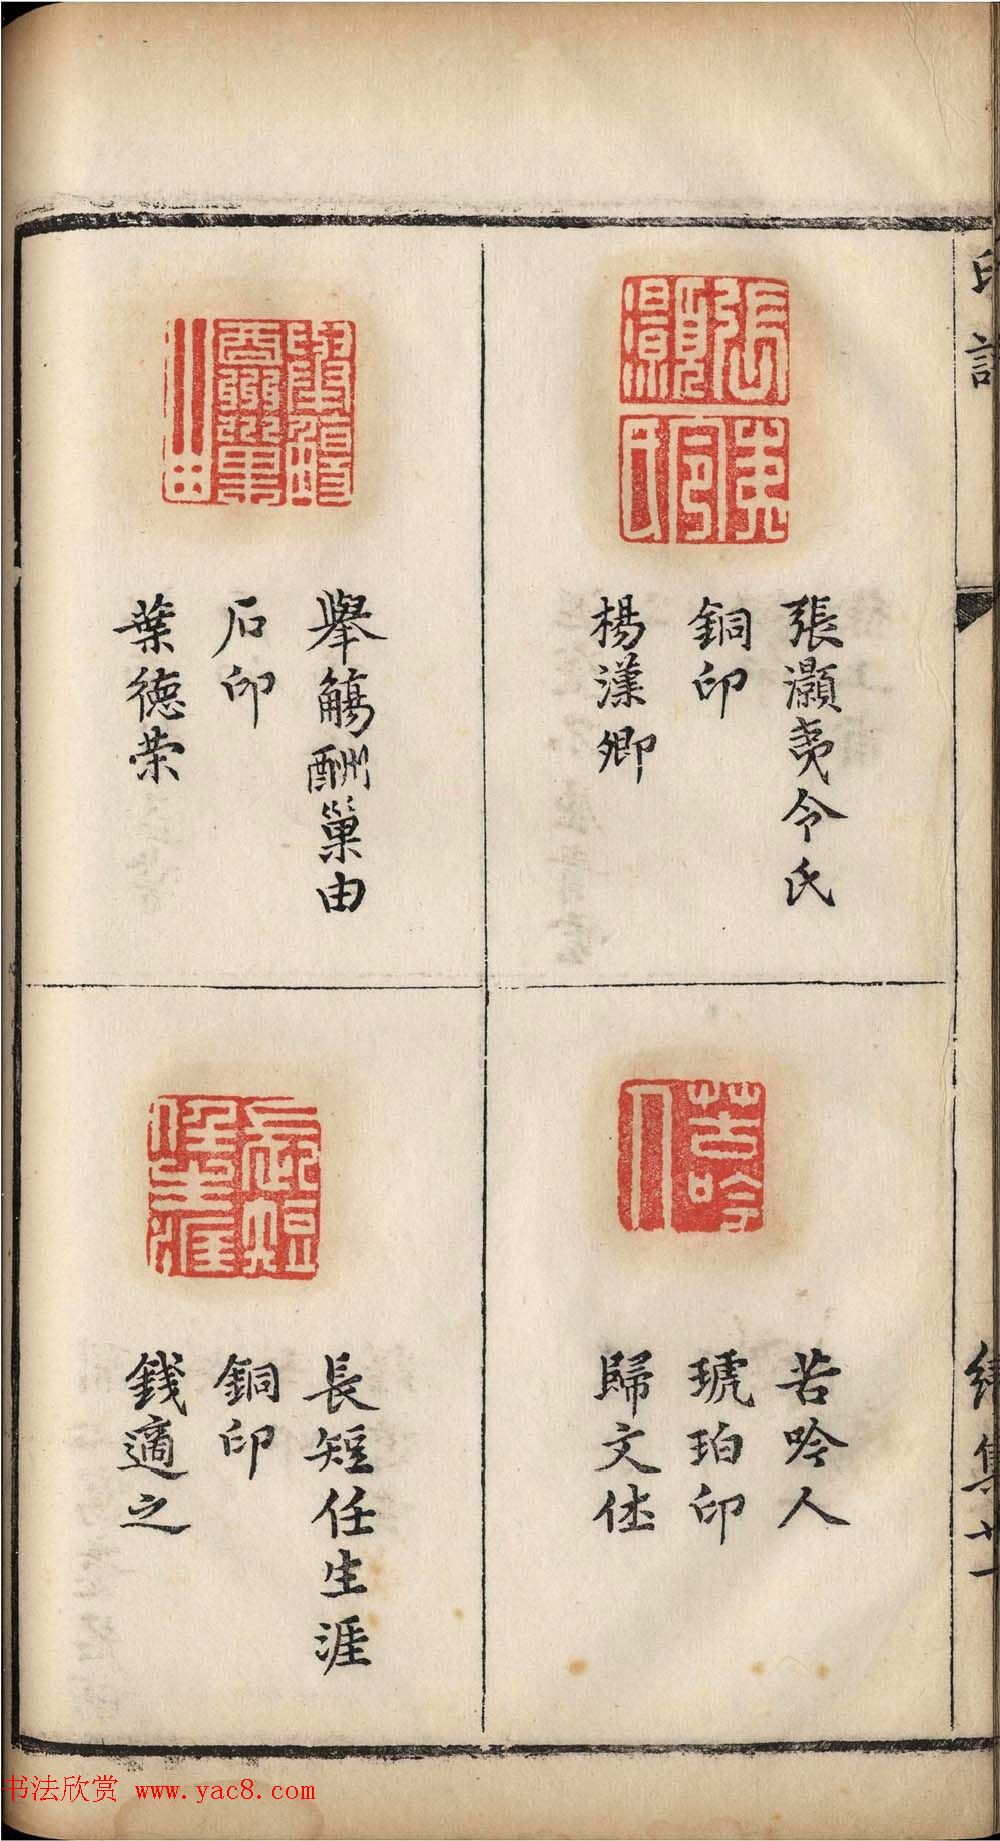 張灝夷令氏
銅印
楊漢卿
苦吟人
琥珀印
歸文休
舉觴酬巢由
石印
葉德榮
長短任生涯
銅印
錢適之
书法欣赏 www.yac8.com